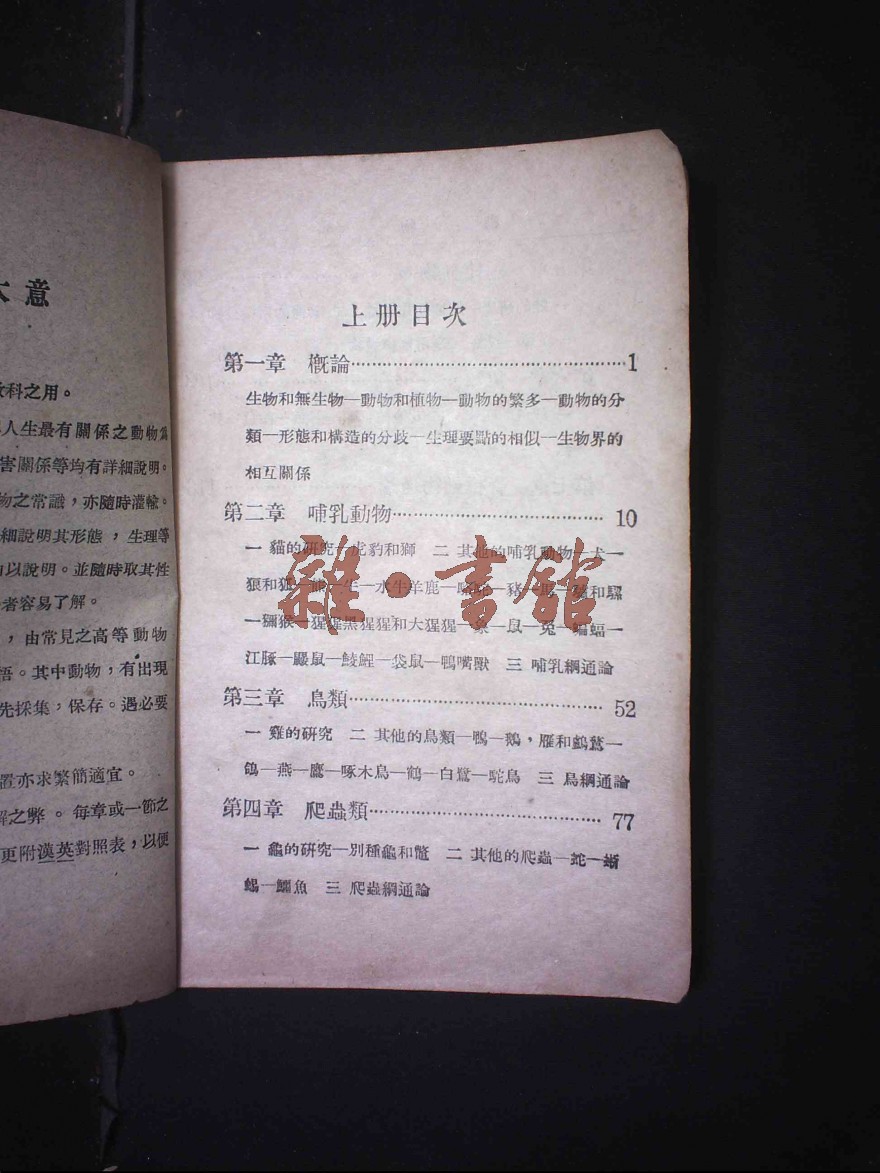 大意
教科之用。
人生最有關係之動物爲
害關係等均有詳細說明。
物之常識，亦隨時灌輸。
細說明其形態，生理等
以說明。並隨時取其性
者容易了解。
，由常見之高等動物
悟。其中動物，有出現
先採集，保存。遇必要
置亦求繁簡適宜。
解之弊。每章或一節之
更附漢英對照表，以便
上册目次
第一章 概論 1
生物和無生物—動物和植物—動物的繁多—動物的分
類—形態和構造的分歧—生理要點的相似—生物界的
相互關係
第二章 哺乳動物 10
一 貓的研究—虎豹和獅 二 其他的哺乳動物—犬—
狼和狐—牛—水牛羊鹿—駱駝—豬—馬—和騾
—獼猴—猩猩黑猩猩和大猩猩—象—鼠—兔—蝙蝠—
江豚—鼴鼠—鯪鯉—袋鼠—鴨嘴獸 三 哺乳綱通論
第三章 鳥類 52
一 雞的研究 二 其他的鳥類—鴨—鵝，雁和鸕鶿—
鴿—燕—鷹—啄木鳥—鶴—白鷺—駝鳥 三 鳥綱通論
第四章 爬蟲類 77
一 龜的研究—別種龜和鼈 二 其他的爬蟲—蛇—蜥
蜴—鱷魚 三 爬蟲綱通論
雜·書館